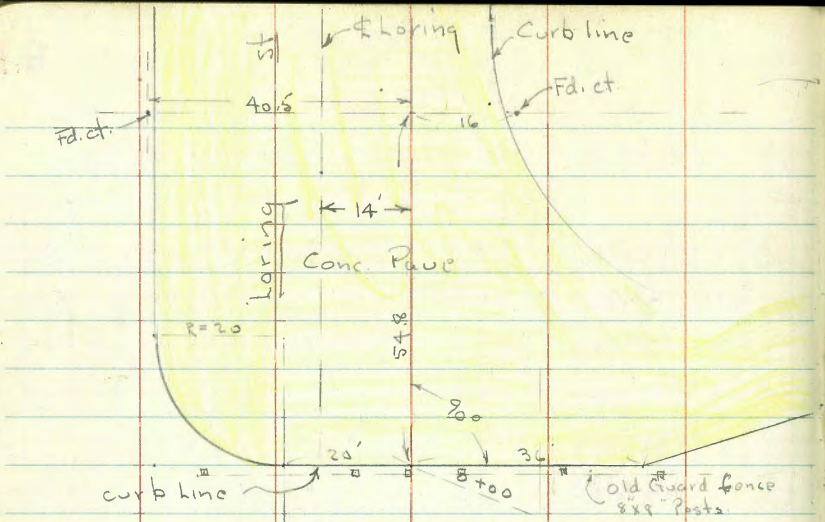 St
℄ Loring
Curb line
Fd. ct.
40.5
16
Fd. ct.
14'
Loring
Conc. Pave
R=20
54.8
90°
20'
36
+00
curb Line
Old Guard fence
8"x8" Posts.